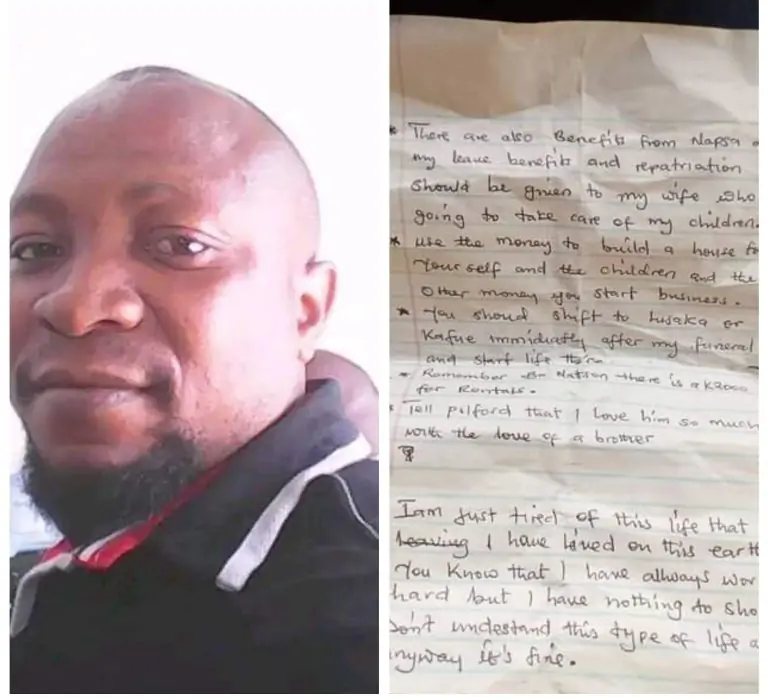 * There are also Benefits from Napsa
my leave benefits and repatriation
should be given to my wife who
going to take care of my children.
* use the money to build a house fo
Your self and the children and the
other money you start business.
* You should shift to Lusaka or
Kafue immidiatly after my funeral
and start life there
* Remember Nation there is a K2000
for Rentals.
Tell pilford that I love him so much
with the love of a brother
I am just tired of this life that
I have lived on this earth
You know that I have allways wor
hard but I have nothing to sho
Don't undestand this type of life a
anyway it's fine.